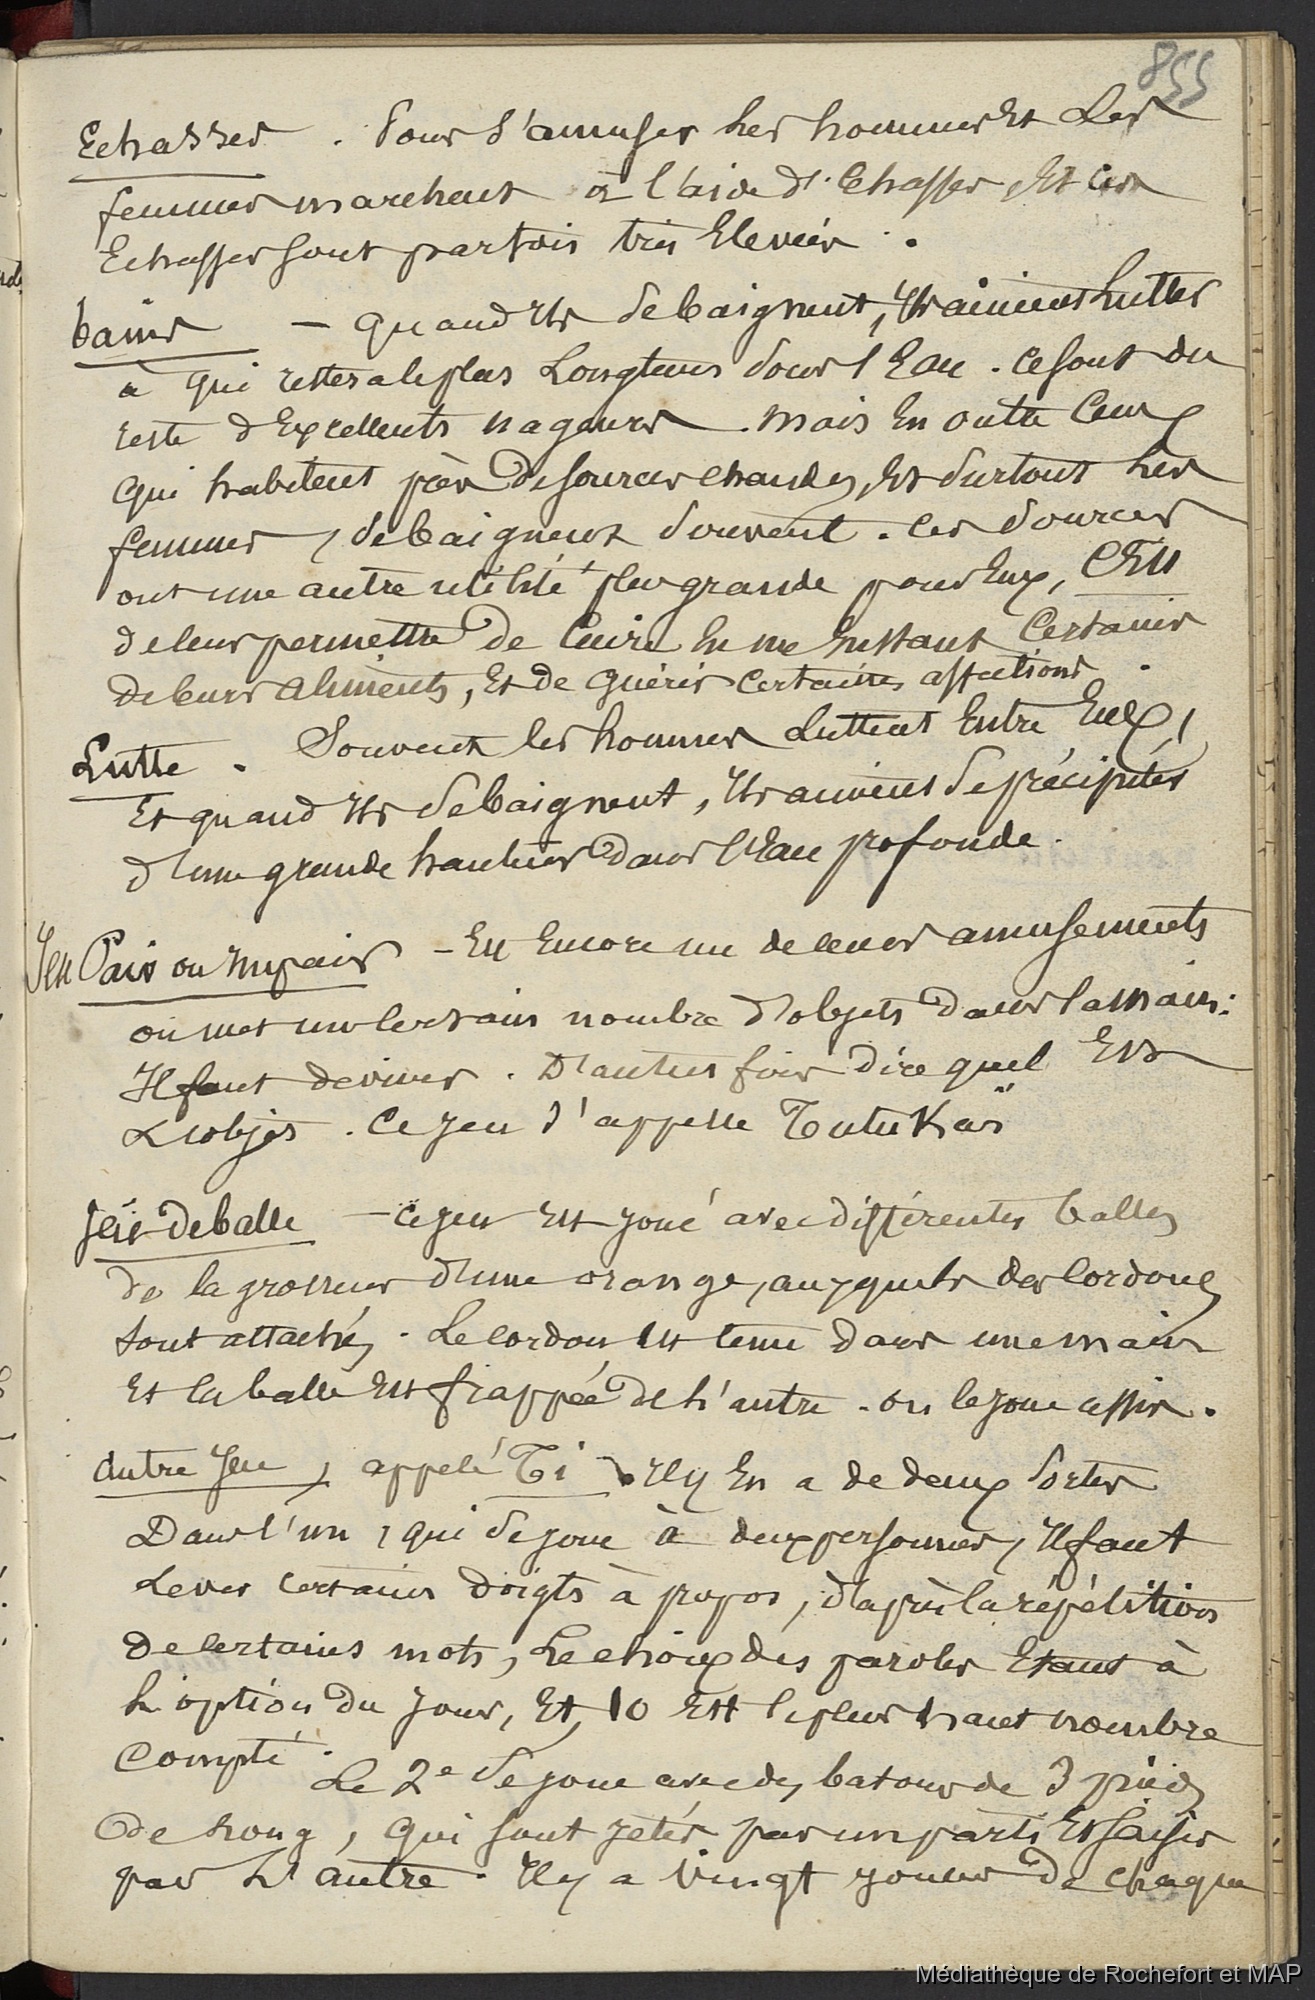 855
Echasses . Pour s'amuser les hommes et Les
femmes marchent à l'aide d'Echasses, et ces
Echasses sont parfois très Elevées .
bains — quand ils se baignent, ils aiment lutter
à qui restera le plus Longtems sous l'Eau . ce sont du
reste d'Excellents nageurs . mais En outre Ceux
qui habitent près de sources chaudes, et surtout les
femmes, se baignent souvent . ces sources
ont une autre utilité plus grande pour Eux, C'Est
de leur permettre de Cuire En un Instant Certains
de leurs aliments, Et de guérir certaines affections .
Lutte . Souvent les hommes Luttent Entre Eux,
Et quand ils se baignent, ils aiment se précipiter
d'une grande hauteur dans l'Eau profonde .
Jeu Pair ou Impair — Est Encore un de leurs amusements
on met un certain nombre d'objets dans la main :
Il faut deviner . D'autres fois dire quel Est
L'objet . Ce jeu s'appelle TutuKaï
Jeu de balle — ce jeu Est joué avec différentes balles
de la grosseur d'une orange, auxquels des cordons
sont attachés . Le cordon Est tenu dans une main
Et la balle Est frappée de L'autre . on le joue assis .
Autre Jeu, appelé Ti . Il y En a de deux sortes
Dans l'un, qui se joue à deux personnes, Il faut
Lever certains doigts à propos, d'après la répétition
de certains mots, Le choix des paroles Etant à
L'option du jour, Et 10 Est le plus haut nombre
Compté .
Le 2e se joue avec des batons de 3 pieds
de Long, qui sont jetés par un parti Et saisis
par L'autre . Il y a vingt joueurs de chaque
Médiathèque de Rochefort et MAP